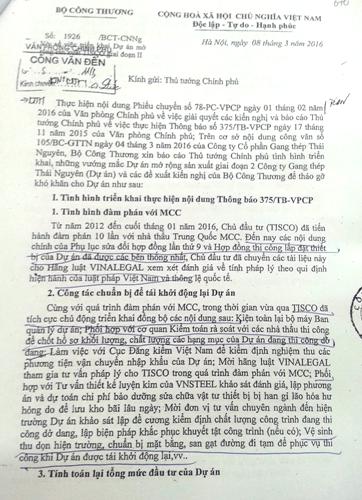 BỘ CÔNG THƯƠNG
CỘNG HOÀ XÃ HỘI CHỦ NGHĨA VIỆT NAM
Độc lập - Tự do - Hạnh phúc
Số: 1926 /BCT-CNNg
Hà Nội, ngày 08 tháng 3 năm 2016
CÔNG VĂN ĐẾN
Kính gửi: Thủ tướng Chính phủ
Thực hiện nội dung Phiếu chuyển số 78-PC-VPCP ngày 01 tháng 02 năm
2016 của Văn phòng Chính phủ về việc giải quyết các kiến nghị và báo cáo Thủ
tướng Chính phủ về việc thực hiện Thông báo số 375/TB-VPCP ngày 17 tháng
11 năm 2015 của Văn phòng Chính phủ; Trên cơ sở nội dung công văn số
105/BC-GTTN ngày 04 tháng 3 năm 2016 của Công ty Cổ phần Gang thép Thái
Nguyên, Bộ Công Thương xin báo cáo Thủ tướng Chính phủ tình hình triển
khai, những vướng mắc Dự án mở rộng sản xuất giai đoạn 2 Công ty Gang thép
Thái Nguyên (Dự án) và các đề xuất kiến nghị của Bộ Công Thương để tháo gỡ
khó khăn cho Dự án như sau:
1. Tình hình triển khai thực hiện nội dung Thông báo 375/TB-VPCP
1. Tình hình đàm phán với MCC
Từ năm 2012 đến cuối tháng 01 năm 2016, Chủ đầu tư (TISCO) đã tiến
hành đàm phán 10 lần với nhà thầu Trung Quốc MCC. Đến nay các nội dung
chính của Phụ lục sửa đổi hợp đồng lần thứ 9 và Hợp đồng thi công lắp đặt thiết
bị của Dự án đã được các bên thống nhất, Chủ đầu tư đã chuyển các tài liệu này
cho Hãng luật VINALEGAL xem xét đánh giá về tính pháp lý theo qui định
hiện hành của luật pháp Việt Nam và thông lệ quốc tế.
2. Công tác chuẩn bị để tái khởi động lại Dự án
Cùng với quá trình đàm phán với MCC, trong thời gian vừa qua TISCO đã
tích cực chủ động triển khai đồng bộ các nội dung sau: Kiện toàn lại bộ máy Ban
quản lý dự án; Phối hợp với cơ quan Kiểm toán rà soát với các nhà thầu thi công
để chốt hồ sơ khối lượng, chất lượng các hạng mục của Dự án đang thi công dở
dang, Làm việc với Cục Đăng kiểm Việt Nam để kiểm định nghiệm thu các
phương tiện vận chuyển nhập khẩu của Dự án; Mời hãng luật VINALEGAL
tham gia tư vấn pháp lý cho TISCO trong quá trình đàm phán với MCC; Phối
hợp với Tư vấn thiết kế luyện kim của VNSTEEL khảo sát đánh giá, lập phương
án và dự toán chi phí bảo dưỡng sửa chữa vật tư thiết bị bị han gỉ lão hóa hư
hỏng do để lưu kho bãi lâu ngày; Mời đơn vị tư vấn chuyên ngành đến hiện
trường Dự án khảo sát lập đề cương kiểm định chất lượng công trình đang thi
công dở dang, lập biện pháp khắc phục khuyết tật công trình (nếu có); Vệ sinh
thu dọn hiện trường, chuẩn bị mặt bằng, san gạt đường đi tạm để phục vụ thi
công khi Dự án được tái khởi động lại,vv..
3. Tính toán lại tổng mức đầu tư của Dự án